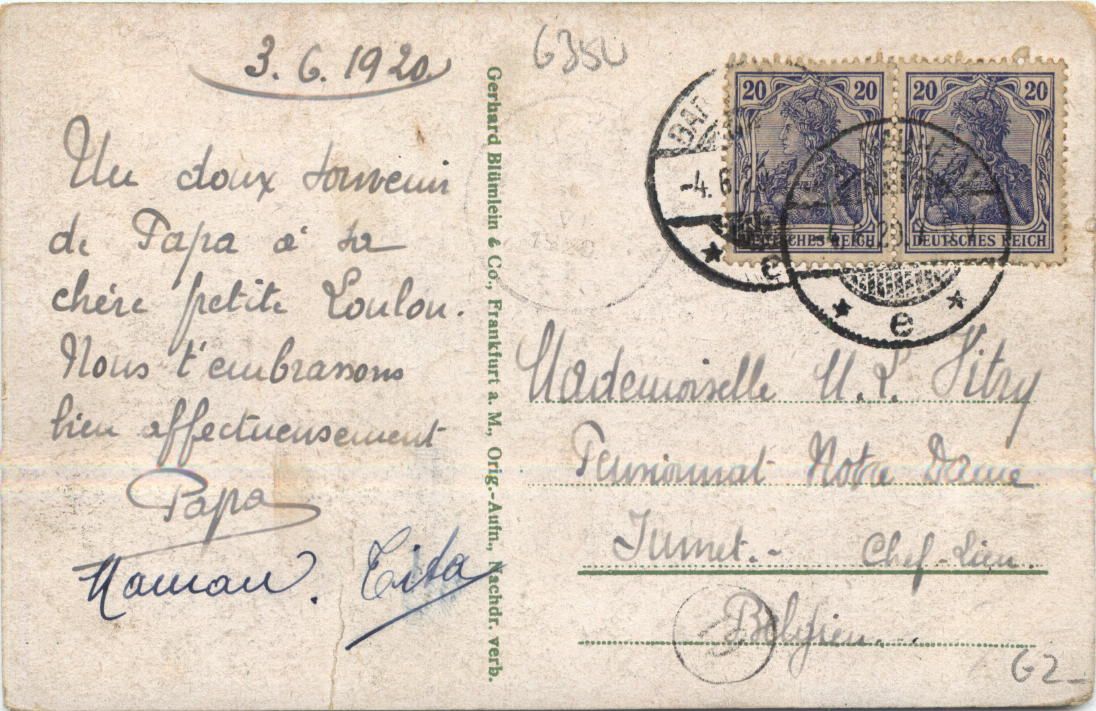 3. 6. 1920
Un doux souvenir
de Papa à sa
chère petite Loulou.
Nous t'embrassons
bien affectueusement
Papa
Maman. Tita
Gerhard Blümlein & Co., Frankfurt a. M., Orig.-Aufn., Nachdr. verb.
G35U
20 20 20 20
DEUTSCHES REICH DEUTSCHES REICH
-4. 6.
* e
MANNHEIM
* e *
Mademoiselle M. L. Vitry
Pensionnat Notre Dame
Jumet.- Chef-Lieu.
Belgien
G2-